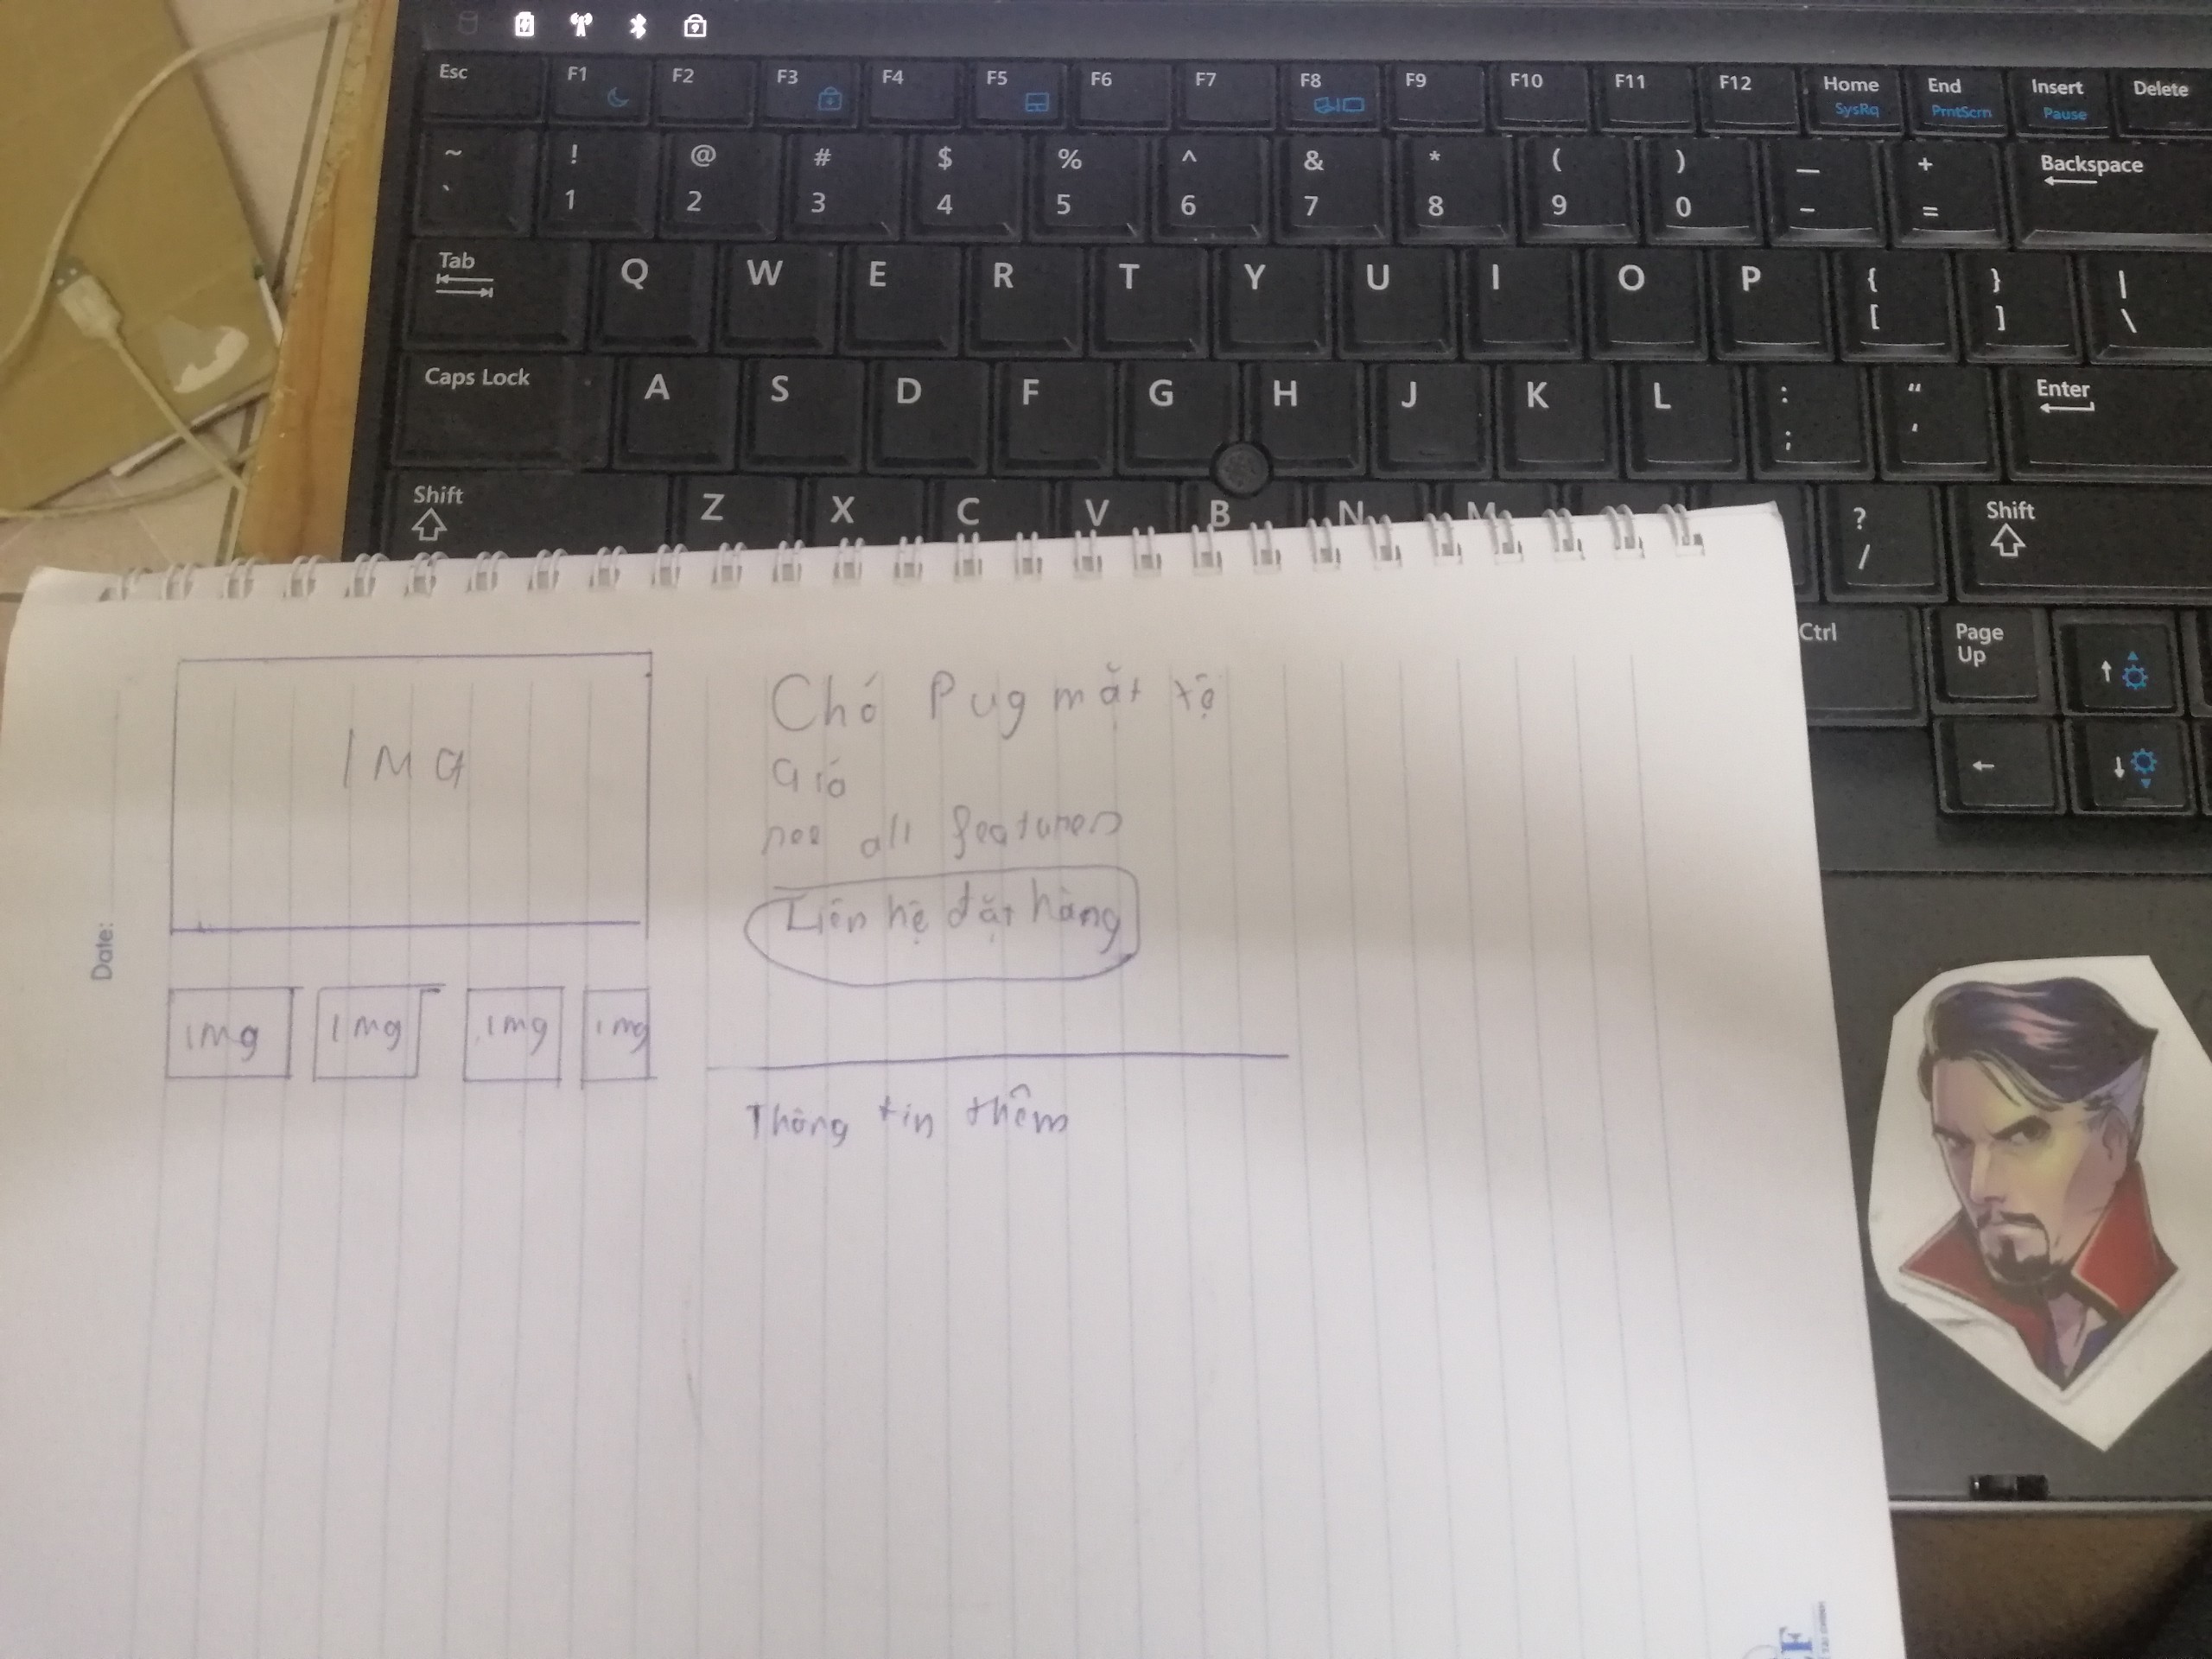 Esc F1 F2 F3 F4 F5 F6 F7 F8 F9 F10 F11 F12 Home End Insert Delete
SysRq PrntScrn Pause
~ ! @ # $ % ^ & * ( ) — + Backspace
` 1 2 3 4 5 6 7 8 9 0 - =
Tab Q W E R T Y U I O P { } |
[ ] \
Caps Lock A S D F G H J K L : “ Enter
; '
Shift Z X C V B N M ? Shift
/
Ctrl Page Up
IMG
Img Img Img Img
Chó Pug mặt tệ
Giá
see all features
Liên hệ đặt hàng
Thông tin thêm
Date: